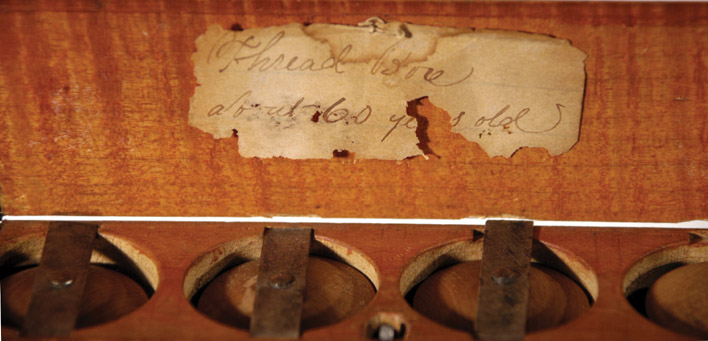 Thread Box
about 60 years old